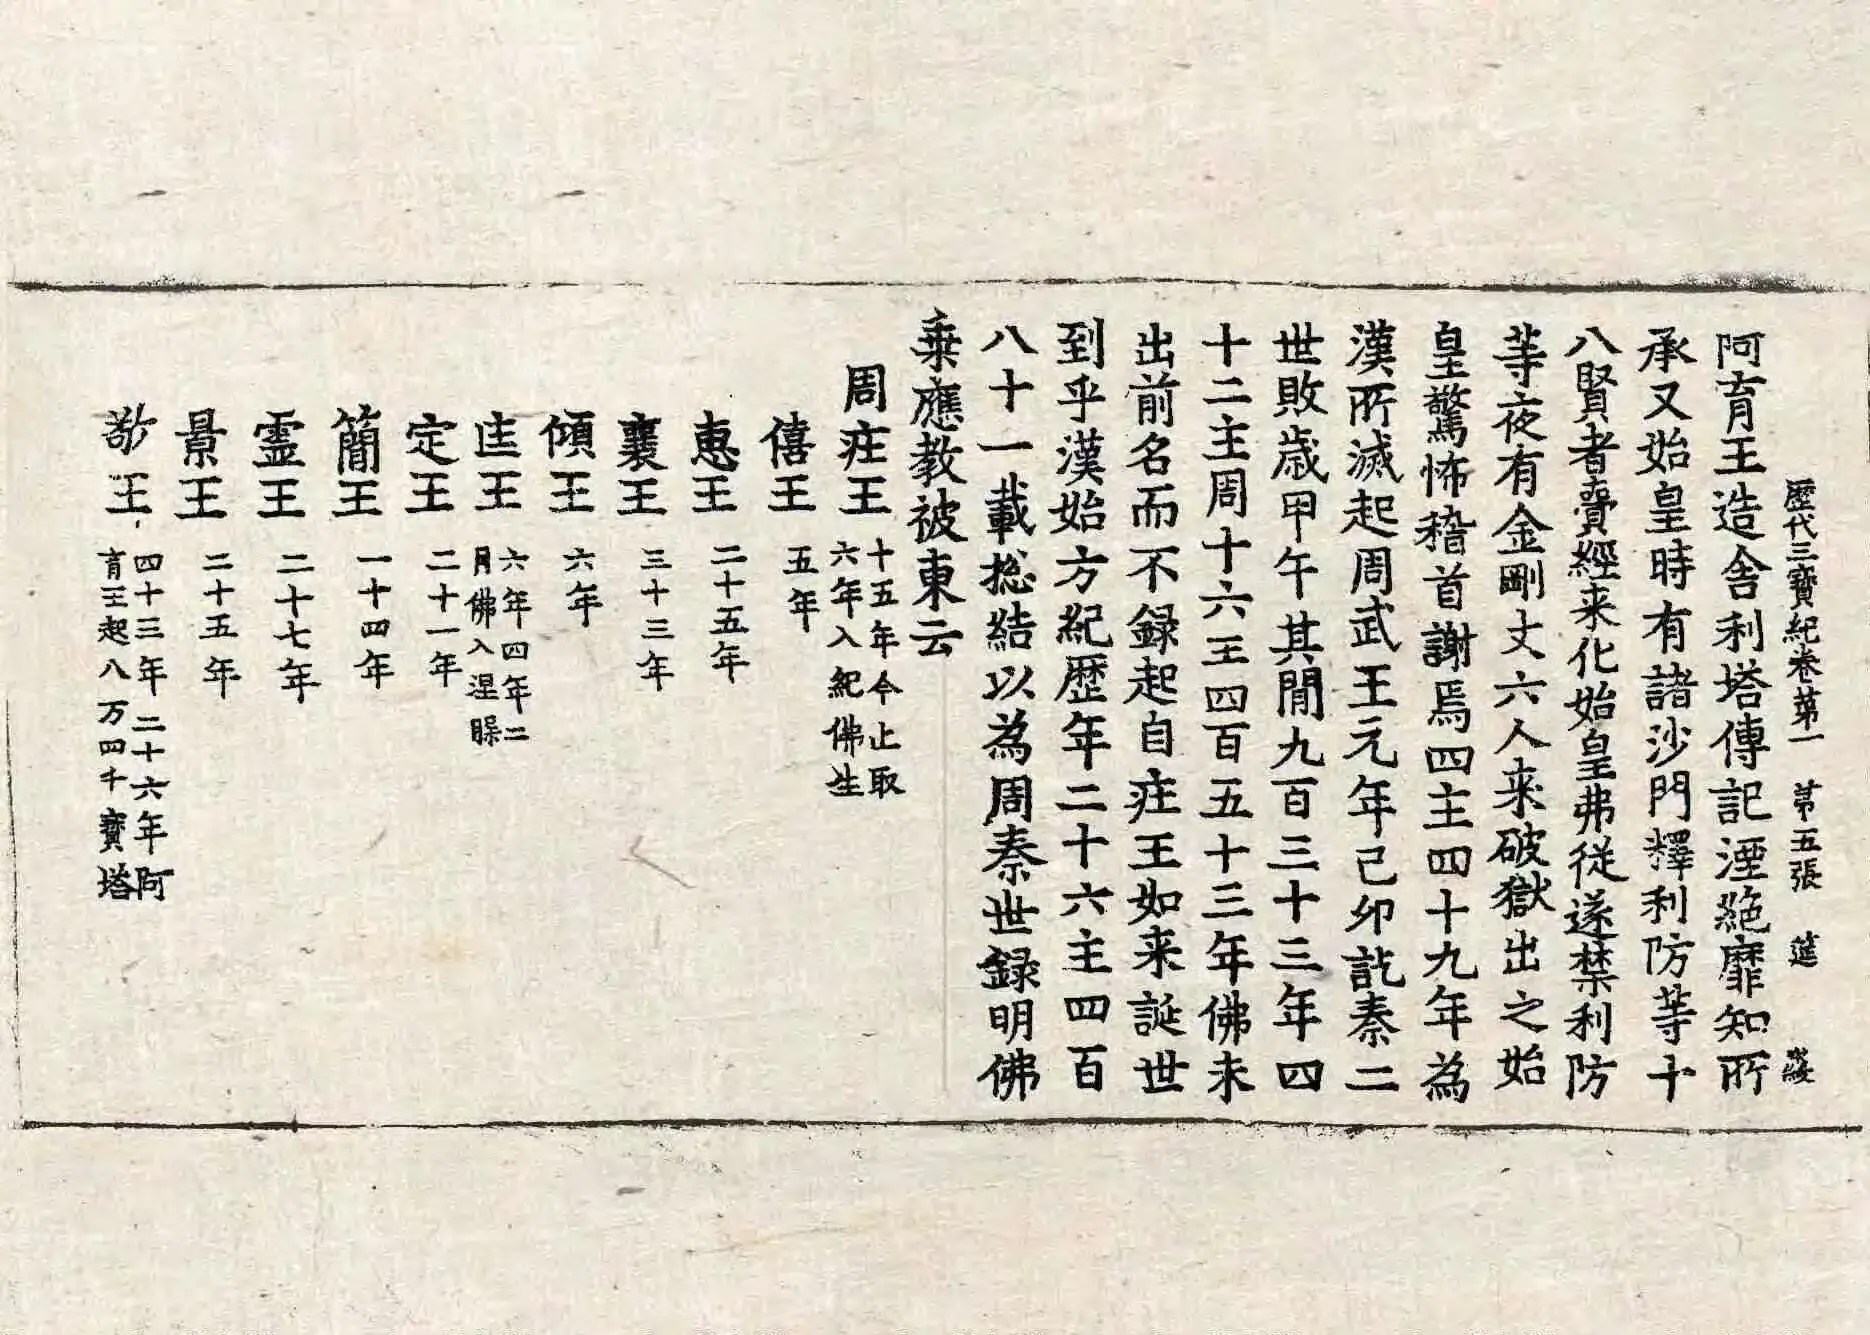 歷代三寶紀卷第一 第五張 莚
阿育王造舍利塔傳記湮絶靡知所
承又始皇時有諸沙門釋利防等十
八賢者賷經来化始皇弗從遂禁利防
等夜有金剛丈六人来破獄出之始
皇驚怖稽首謝焉四主四十九年為
漢所滅起周武王元年己卯訖秦二
世敗歲甲午其間九百三十三年四
十二主周十六王四百五十三年佛未
出前名而不録起自疰王如来誕世
到乎漢始方紀歷年二十六主四百
八十一載捴結以為周秦世録明佛
乗應教被東云
周疰王 十五年今止取
六年入紀佛生
僖王 五年
惠王 二十五年
襄王 三十三年
傾王 六年
王 六年四年二
月佛入涅
定王 二十一年
簡王 一十四年
靈王 二十七年
景王 二十五年
敬王 四十三年二十六年阿
育王起八万四千寶塔